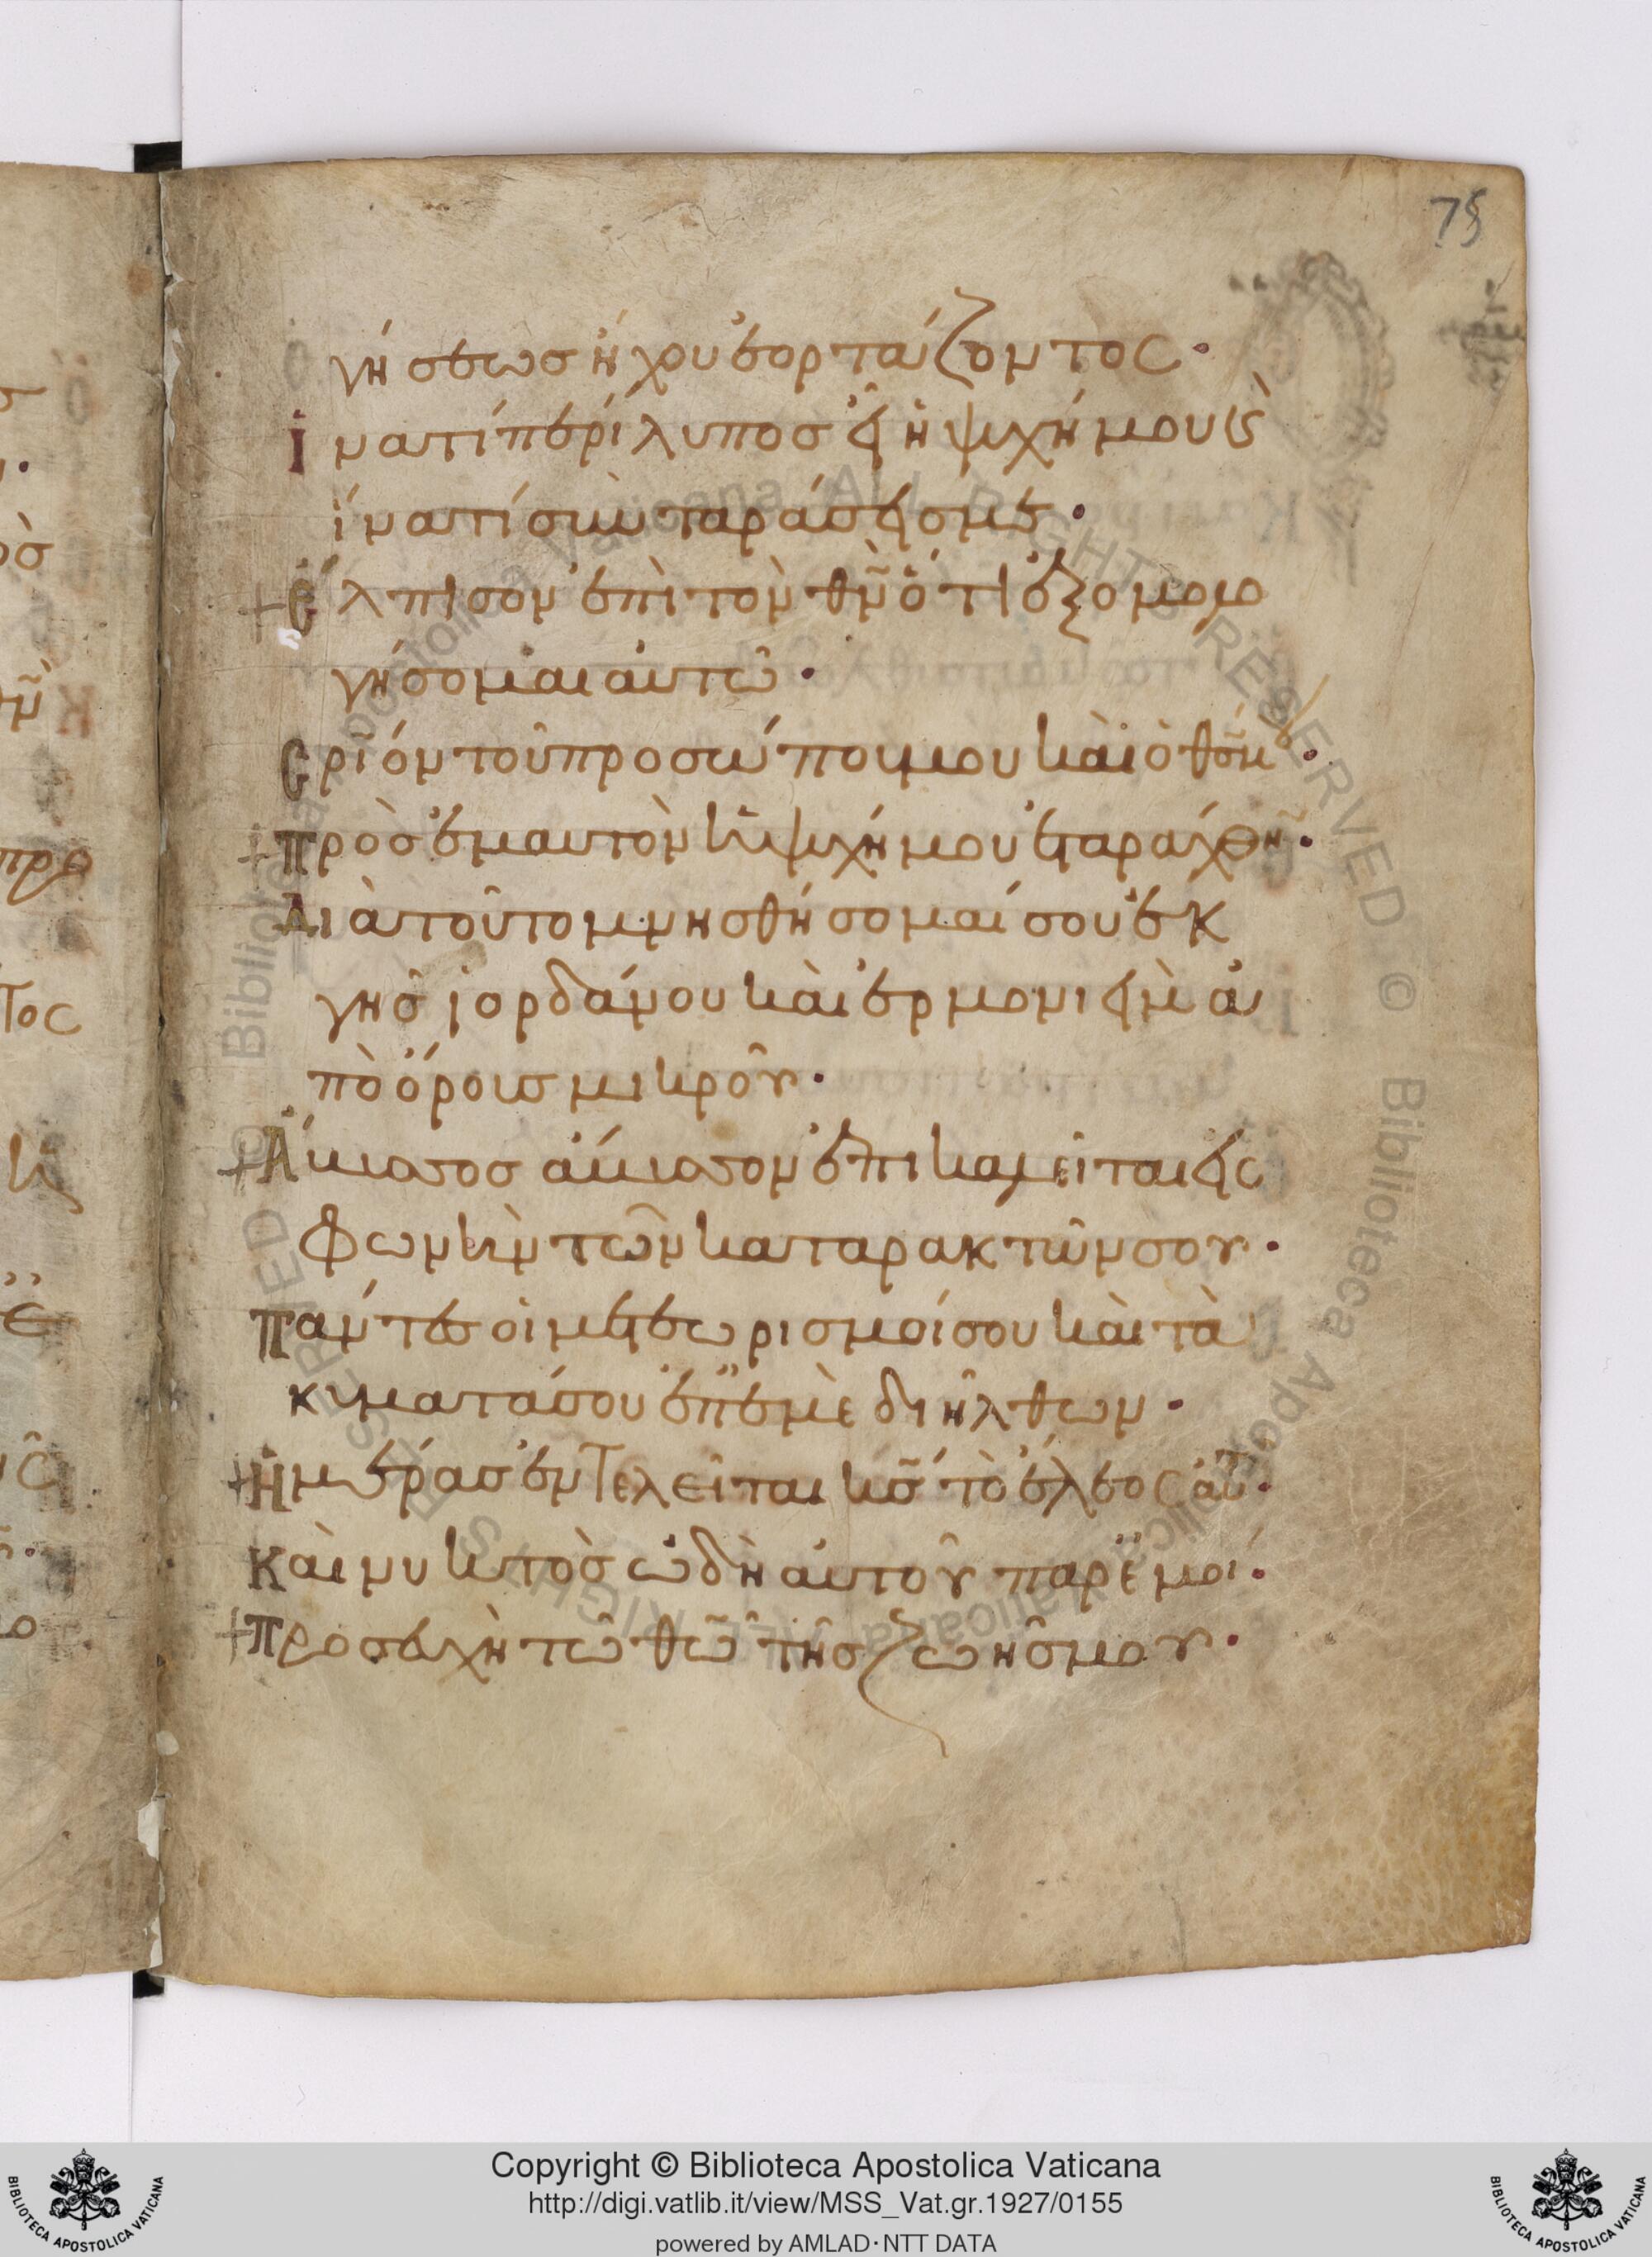 75
γήσεωσ ἤχου ἑορτάζοντος·
ἱνατί περίλυποσ εἶ ἡ ψυχή μου κ̀
ἱνατί συν ταράσσεισ με·
+ἔλπισον ἐπὶ τὸν θν̃ ὅτι ἐξομολο
γήσομαι αὐτῶ·
Σ̣ριον τοῦ προσώπου μου καὶ ὁ θσ̃ μου·
+πρὸσ ἐμαυτὸν ἡ ψυχή μου ἐταράχθη·
Διὰ τοῦτο μνησθήσομαί σου ἐκ
γῆσ ἰορδάνου καὶ ἑρμονιεὶμ ἀ
πὸ ὄρουσ μικροῦ·
+Ἄβυσσοσ ἄβυσσον ἐπικαλεῖται εἰς
φωνὴν τῶν καταρακτῶν σου·
πάντεσ οἱ μετεωρισμοί σου καὶ τὰ
κύματά σου ἐπ' ἐμὲ διῆλθων·
+Ἡμέρασ ἐντελεῖται κσ̃ τὸ ἔλεος αὐτ·
καὶ νυκτὸσ ὠδὴ αὐτοῦ παρ' ἐμοί·
+προσευχὴ τῶ θῶ τῆσ ζωῆσ μου·
© Biblioteca Apostolica Vaticana ALL RIGHTS RESERVED © Biblioteca Apostolica Vaticana ALL RIGHTS RESERVED
Copyright © Biblioteca Apostolica Vaticana
http://digi.vatlib.it/view/MSS_Vat.gr.1927/0155
powered by AMLAD·NTT DATA
BIBLIOTECA APOSTOLICA VATICANA
BIBLIOTECA APOSTOLICA VATICANA